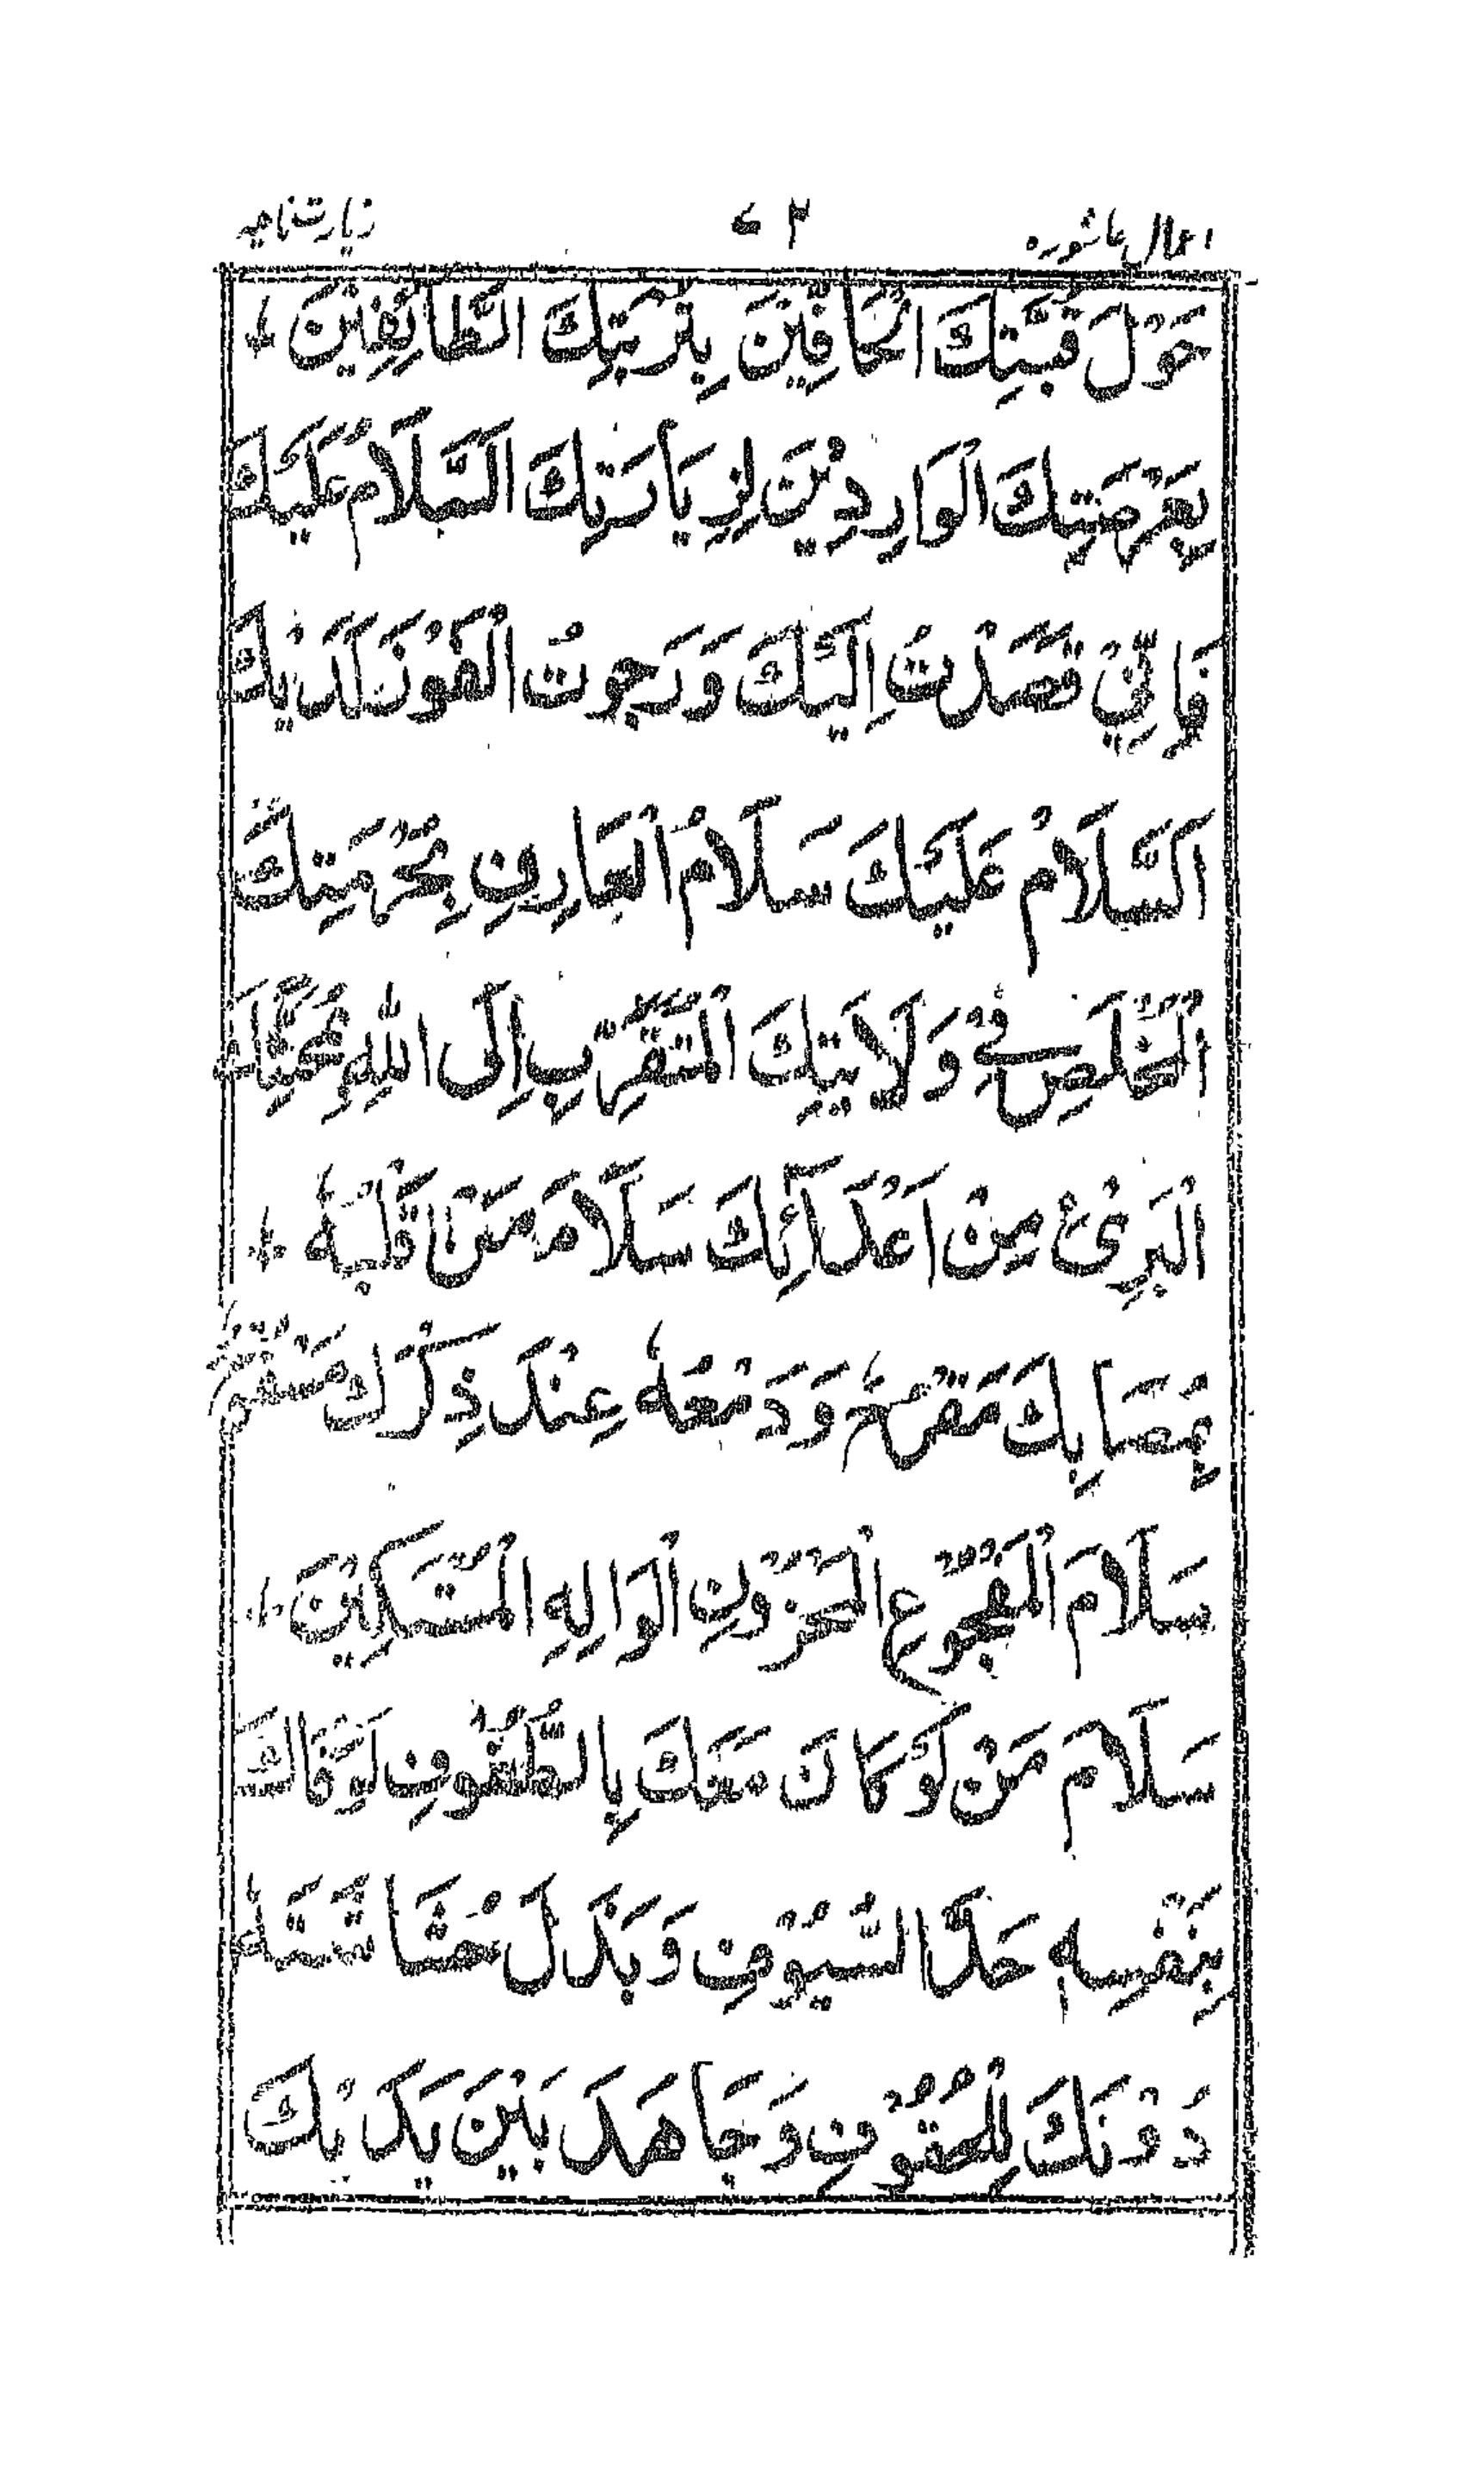 اعمال عاشوره ۷۳ زیارت ناحیه
حَوْلَ قُبَّتِكَ الْحَافِّيْنَ بِتُرْبَتِكَ الطَّائِفِيْنَ
بِعَرْصَتِكَ الْوَارِدِيْنَ لِزِيَارَتِكَ السَّلَامُ عَلَيْكَ
فَاِنِّيْ قَصَدْتُ اِلَيْكَ وَرَجَوْتُ الْفَوْزَ لَدَيْكَ
اَلسَّلَامُ عَلَيْكَ سَلَامُ الْعَارِفِ بِحُرْمَتِكَ
الْمُخْلِصِ فِيْ وَلَايَتِكَ الْمُتَقَرِّبِ اِلَى اللّٰهِ بِمُحَبَّتِكَ
الْبَرِىْءِ مِنْ اَعْدَآئِكَ سَلَامَ مَنْ قَلْبُهٗ
بِمُصَابِكَ مَقْرُوْحٌ وَدَمْعُهٗ عِنْدَ ذِكْرِكَ مَسْفُوْحٌ
سَلَامَ الْمَفْجُوْعِ الْمَحْزُوْنِ الْوَالِهِ الْمُسْتَكِيْنِ
سَلَامَ مَنْ لَوْ كَانَ مَعَكَ بِالطُّفُوْفِ لَوَقَاكَ
بِنَفْسِهٖ حَدَّ السُّيُوْفِ وَبَذَلَ حُشَاشَتَهٗ
دُوْنَكَ لِلْحُتُوْفِ وَجَاهَدَ بَيْنَ يَدَيْكَ